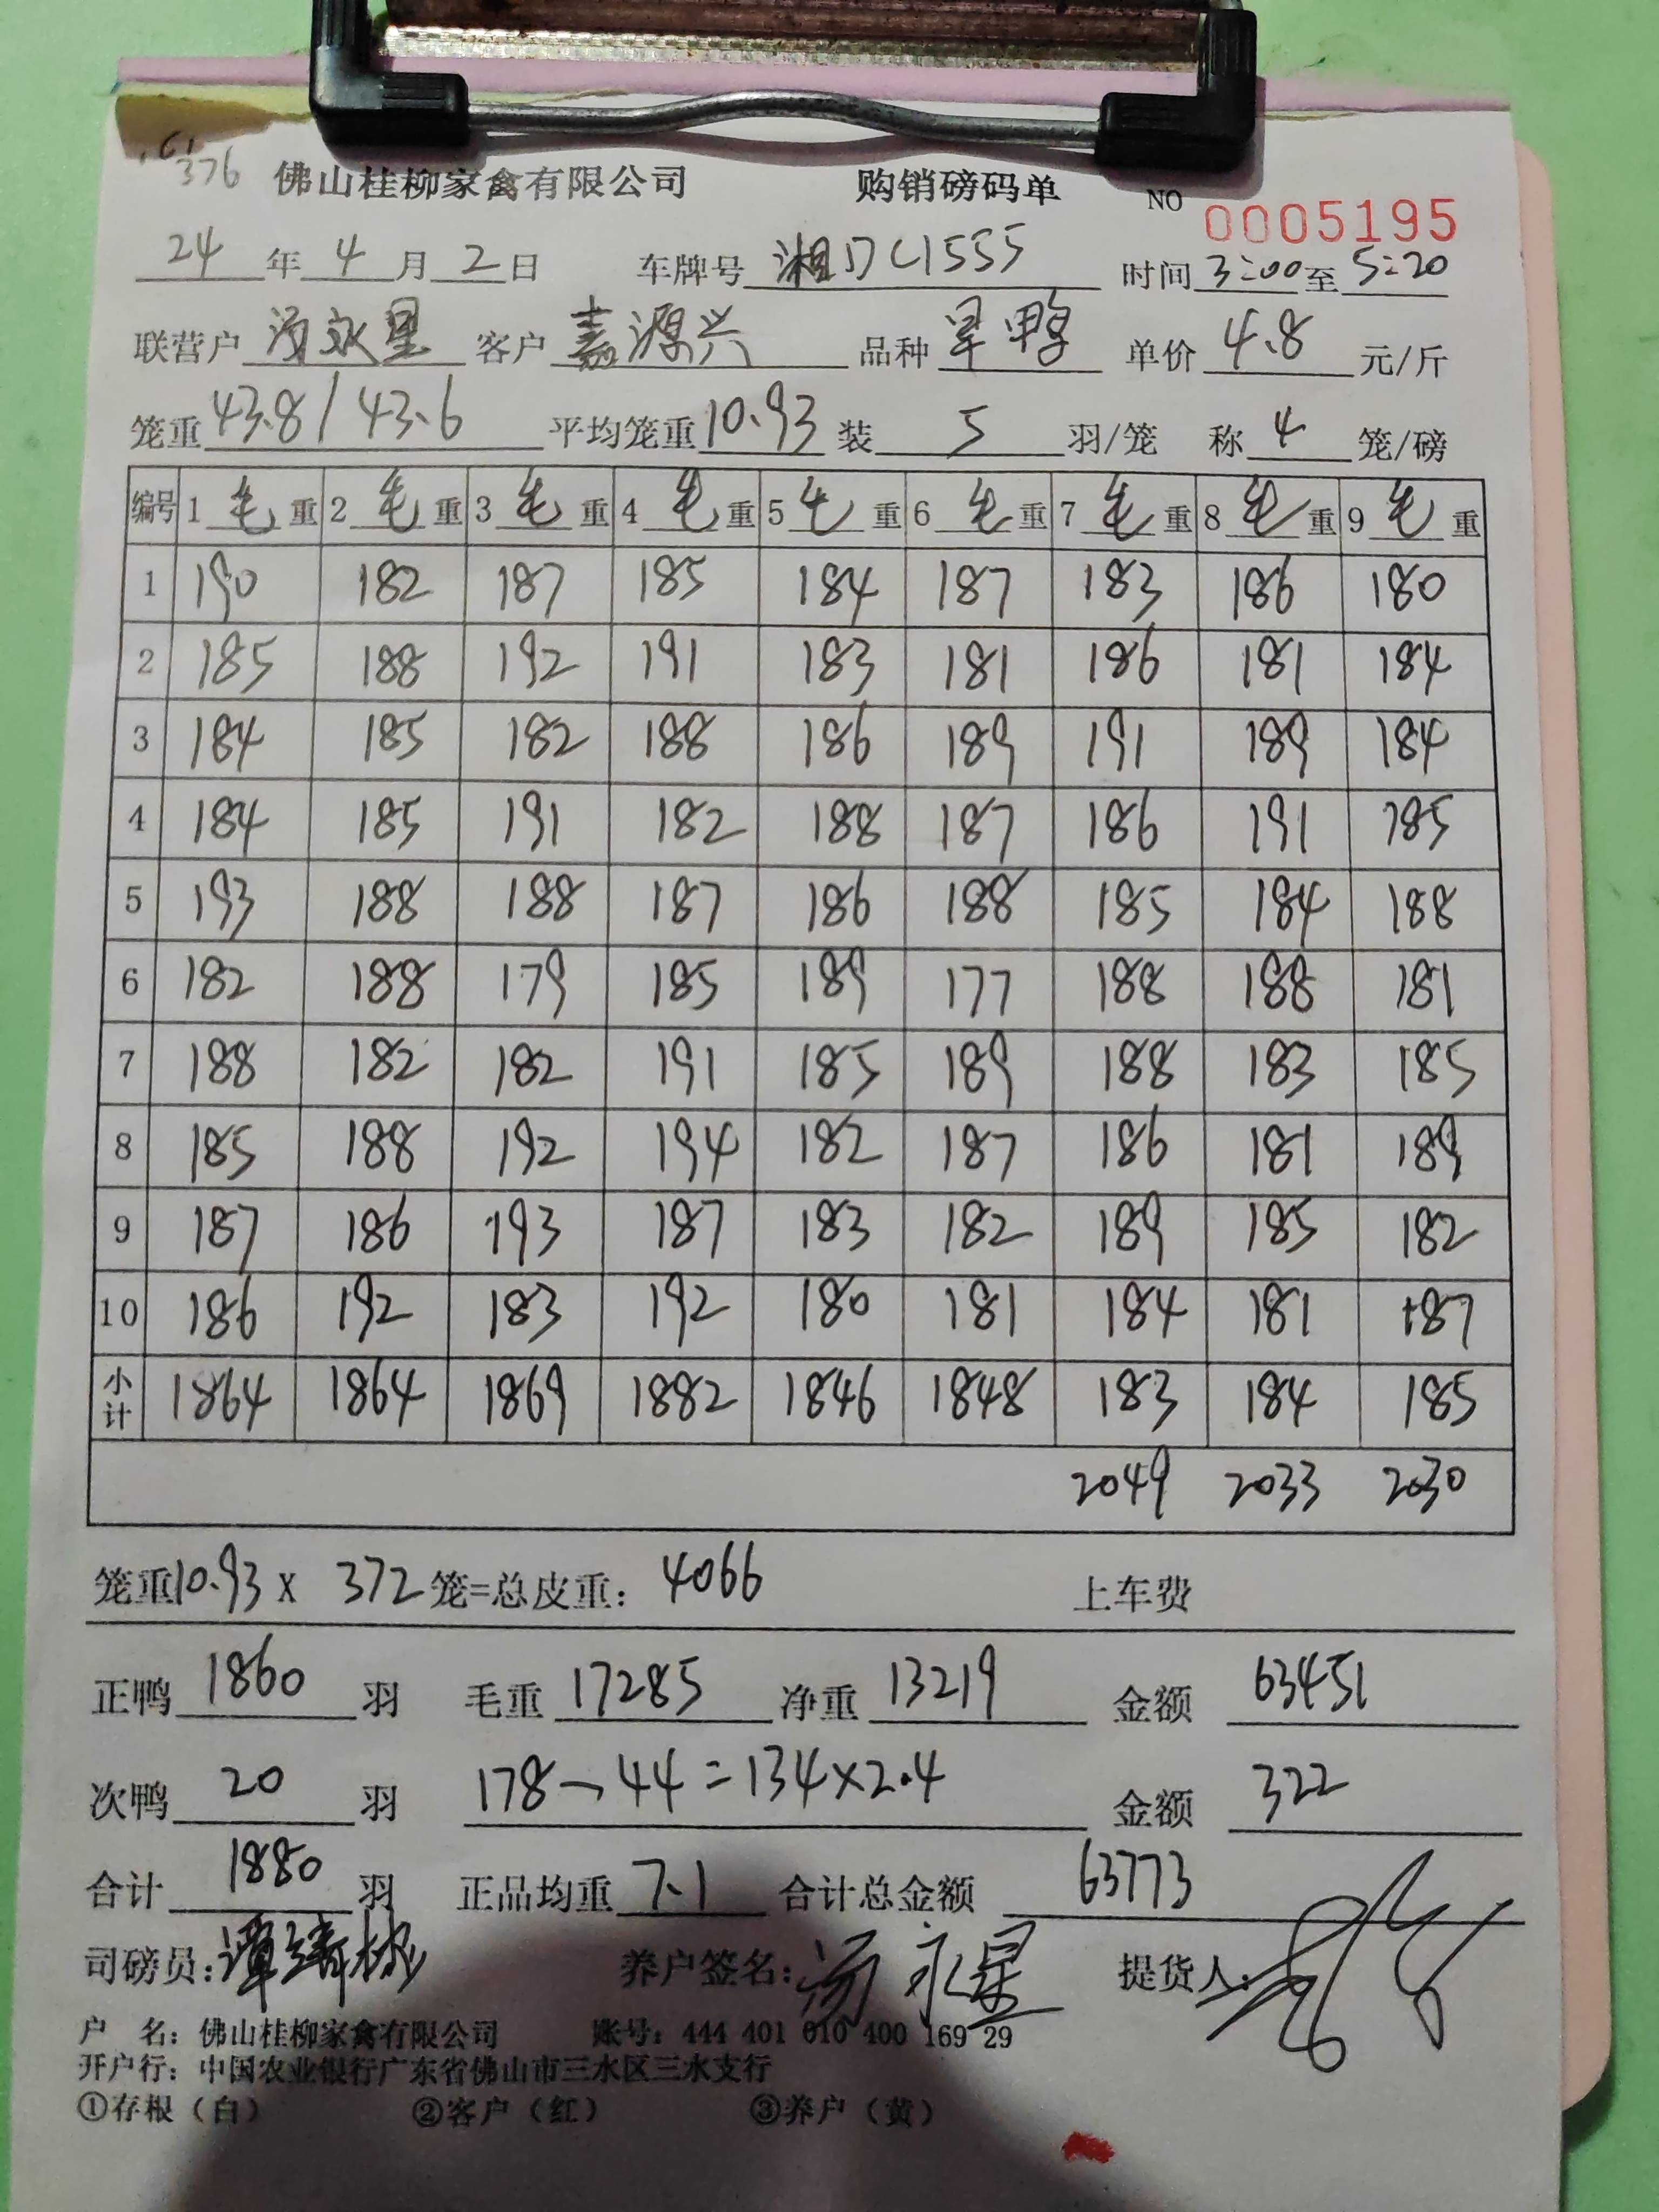 376
佛山桂柳家禽有限公司 购销磅码单 NO 0005195
24年4月2日 车牌号 湘DC1555 时间3:00至5:20
联营户 汤永星 客户 嘉源兴 品种 旱鸭 单价 4.8 元/斤
笼重 43.8/43.6 平均笼重 10.93 装 5 羽/笼 称 4 笼/磅
编号 1毛重 2毛重 3毛重 4毛重 5毛重 6毛重 7毛重 8毛重 9毛重
1 190 182 187 185 184 187 183 186 180
2 185 188 192 191 183 181 186 181 184
3 184 185 182 188 186 189 191 189 184
4 184 185 191 182 188 187 186 191 185
5 193 188 188 187 186 188 185 184 188
6 182 188 179 185 189 177 188 188 181
7 188 182 182 191 185 189 188 183 185
8 185 188 192 194 182 187 186 181 189
9 187 186 193 187 183 182 189 185 182
10 186 192 183 192 180 181 184 181 187
小计 1864 1864 1869 1882 1846 1848 183 184 185
2049 2033 2030
笼重10.93 X 372笼=总皮重: 4066 上车费
正鸭 1860 羽 毛重 17285 净重 13219 金额 63451
次鸭 20 羽 178-44=134×2.4 金额 322
合计 1880 羽 正品均重 7.1 合计总金额 63773
司磅员: 谭 养户签名: 汤永星 提货人:
户 名: 佛山桂柳家禽有限公司 账号: 444 401 010 400 169 29
开户行: 中国农业银行广东省佛山市三水区三水支行
①存根（白） ②客户（红） ③养户（黄）